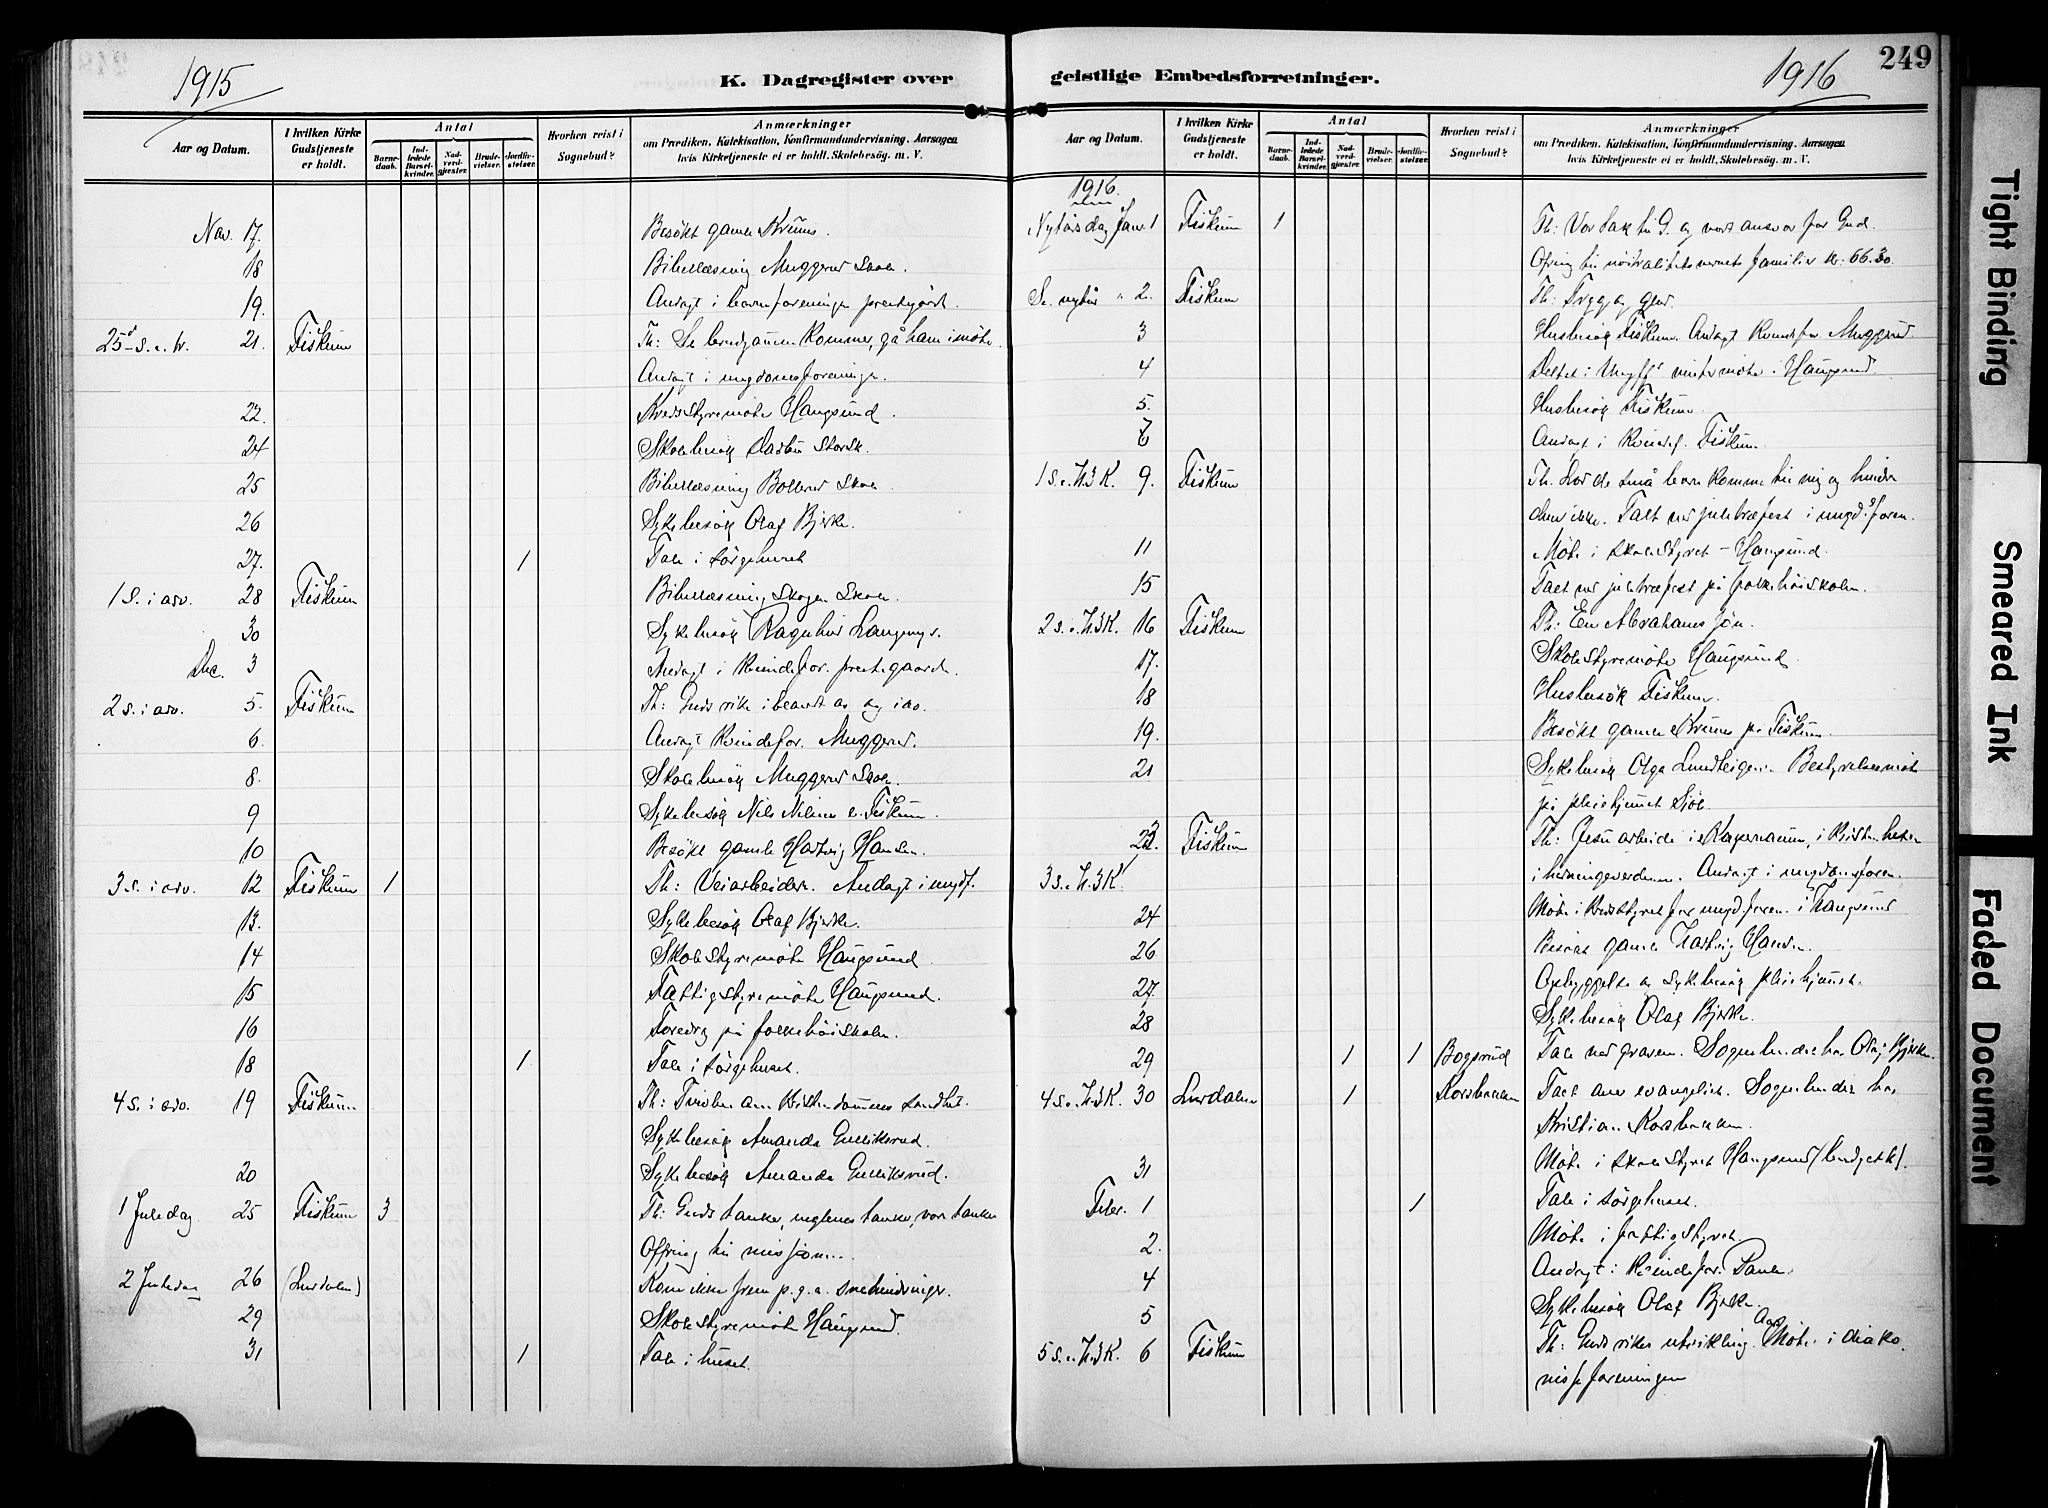 1915
K. Dagregister over
Aar og Datum.
I hvilken Kirke Gudstjeneste er holdt.
Antal
Barnedaab.
Indledede Barselkvinder.
Nadverdgjester.
Brudevielser.
Jordfæstelser.
Hvorhen reist i Sognebud?
Anmærkninger
om Prædiken, Katekisation, Konfirmandundervisning, Aarsagen
hvis Kirketjeneste ei er holdt, Skolebesög. m. V.
Nov. 17. Besøkt gamle Kruus.
18 Bibellæsning Muggerud Skole.
19. Andagt i barneforeningen prestegård.
25d S. e. tr. 21. Fiskum Th: Se brudgommen kommer, gå ham i møte.
Andagt i ungdomsforeningen.
22. Kredsstyremøte Haugsund.
24 Skolebesøk Darbu Storsk.
25 Bibellæsning Bollerud Skole
26 Sykebesøk Olaf Bjerke.
27. 1 Tale i sørgehuset
1 S. i adv. 28 Fiskum Bibellæsning Skogen Skole.
30 Sykebesøk Ragnhild
Dec. 3 Andagt i Kvindefor. prestegaard.
2 S. i adv. 5. Fiskum Th: Guds rike
6. Andagt Kvindefor. Muggerud.
8. Skolebesøk Muggerud Skole.
9 Sykebesøk Nils Nilsen Fiskum.
10 Besøkt gamle Hartvig Hansen.
3 S. i adv. 12 Fiskum 1 Th: Veiarbeidere. Andagt i ungdf.
13. Sykebesøk Olaf Bjerke.
14 Skolestyremøte Haugsund.
15 Fattigstyremøte Haugsund.
16 Foredrag på folkehøiskolen.
18 1 Tale i sørgehuset.
4 S. i adv. 19 Fiskum Th: Tvilen om Kristendommens sandhet.
Sykebesøk Amanda Gulliksrud.
20 Sykebesøk Amanda Gulliksrud.
1 Juledag 25 Fiskum 3 Th: Guds tanke, englenes tanke, vor tanke
Offring til missjonen.
2 Juledag 26 (Lurdalen) Kom ikke frem p.g.a. snehindringer.
29 Skolestyremøte Haugsund.
31 1 Tale i huset.
249
1916
geistlige Embedsforretninger.
Aar og Datum.
I hvilken Kirke Gudstjeneste er holdt.
Antal
Barnedaab.
Indledede Barselkvinder.
Nadverdgjester.
Brudevielser.
Jordfæstelser.
Hvorhen reist i Sognebud?
Anmærkninger
om Prædiken, Katekisation, Konfirmandundervisning, Aarsagen
hvis Kirketjeneste ei er holdt, Skolebesög. m. V.
1916.
Nytårsdag Jan. 1 Fiskum 1 Th: Vor tak til G. og vort ansvar for Gud.
Ofring til nøitralitetsvernets familier kr. 66.30.
S. e. nytår " 2. Fiskum Th: Tryg og glad.
3 Husbesøk Fiskum. Andagt Kvindefor. Muggerud
4 Deltat i Ungf's vintermøte i Haugsund.
5. Husbesøk Fiskum.
7 Andagt i Kvindef. Fiskum.
1 S. e. H3K. 9. Fiskum Th. Lad de små barn komme til mig og hindre
dem ikke. Talt ved juletræfest i ungd.sforen.
11 Møte i Skolestyret – Haugsund.
15 Talt ved juletræfest på folkehøiskolen.
2 S. e. H3K. 16 Fiskum Th: En Abrahams søn.
17. Skolestyremøte Haugsund.
18 Husbesøk Fiskum.
19. Besøkt gamle Kruus på Fiskum.
21 Sykebesøk Olga Lundteigen. Bestyrelsesmøte
på pleiehjemmet
23. Fiskum Th: Jesu arbeide i Kapernaum, i Kristenheten
3 S. e. H3K. i hedningeverdenen. Andagt i ungdomsforen.
24 Møte i Kredsstyret for ungd.foren. i Haugsund
26 Besøkt gamle Hartvig Hansen.
27. Opbyggelse og sykebesøk pleiehjemmet.
28 Sykebesøk Olaf Bjerke.
29 1 1 Bogsrud Tale ved graven. Sognebud hos Olaf Bjerke.
4 S. e. H3K. 30 Lurdalen 1 Korsbakken Talt over evangeliet. Sognebud hos
Kristian Korsbakken.
31 Møte i Skolestyret Haugsund (budgett).
Febr. 1 1 Tale i sørgehuset.
Møte i fattigstyret.
2. Andagt i Kvindefor.
4 Sykebesøk Olaf Bjerke.
5
5 S. e. H3K. 6 Fiskum Th: Guds rikes utvikling. Møte i diako
nisseforeningen